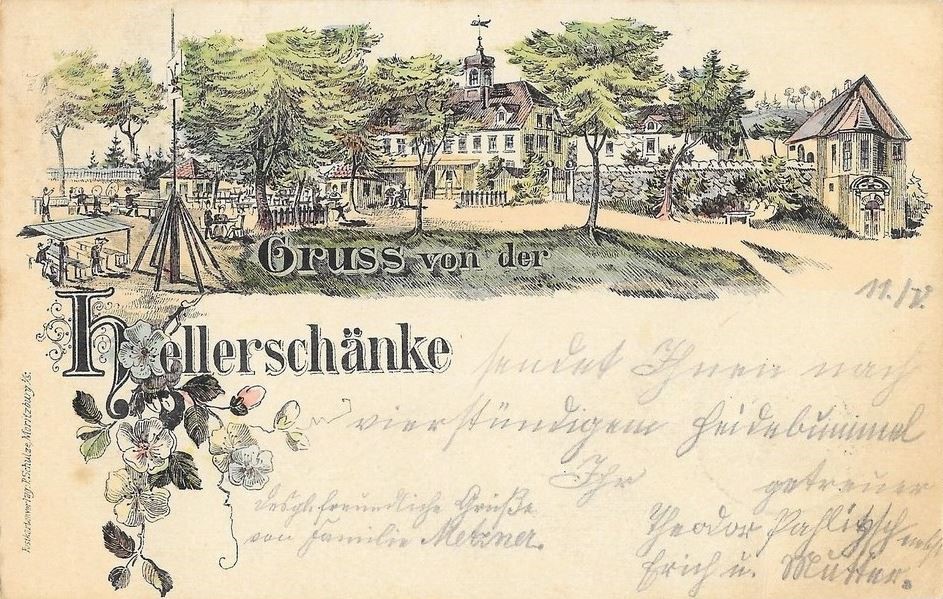 Gruss von der
Hellerschänke
11./V.
sendet Ihnen nach
vierstündigem Heidebummel
Ihr getreuer
Theodor Pahlitzsch nebst
Erich u. Mutter.
Desgl. freundliche Grüße
von Familie Metzner.
Postkartenverlag: P. Schulze, Moritzburg i/S.